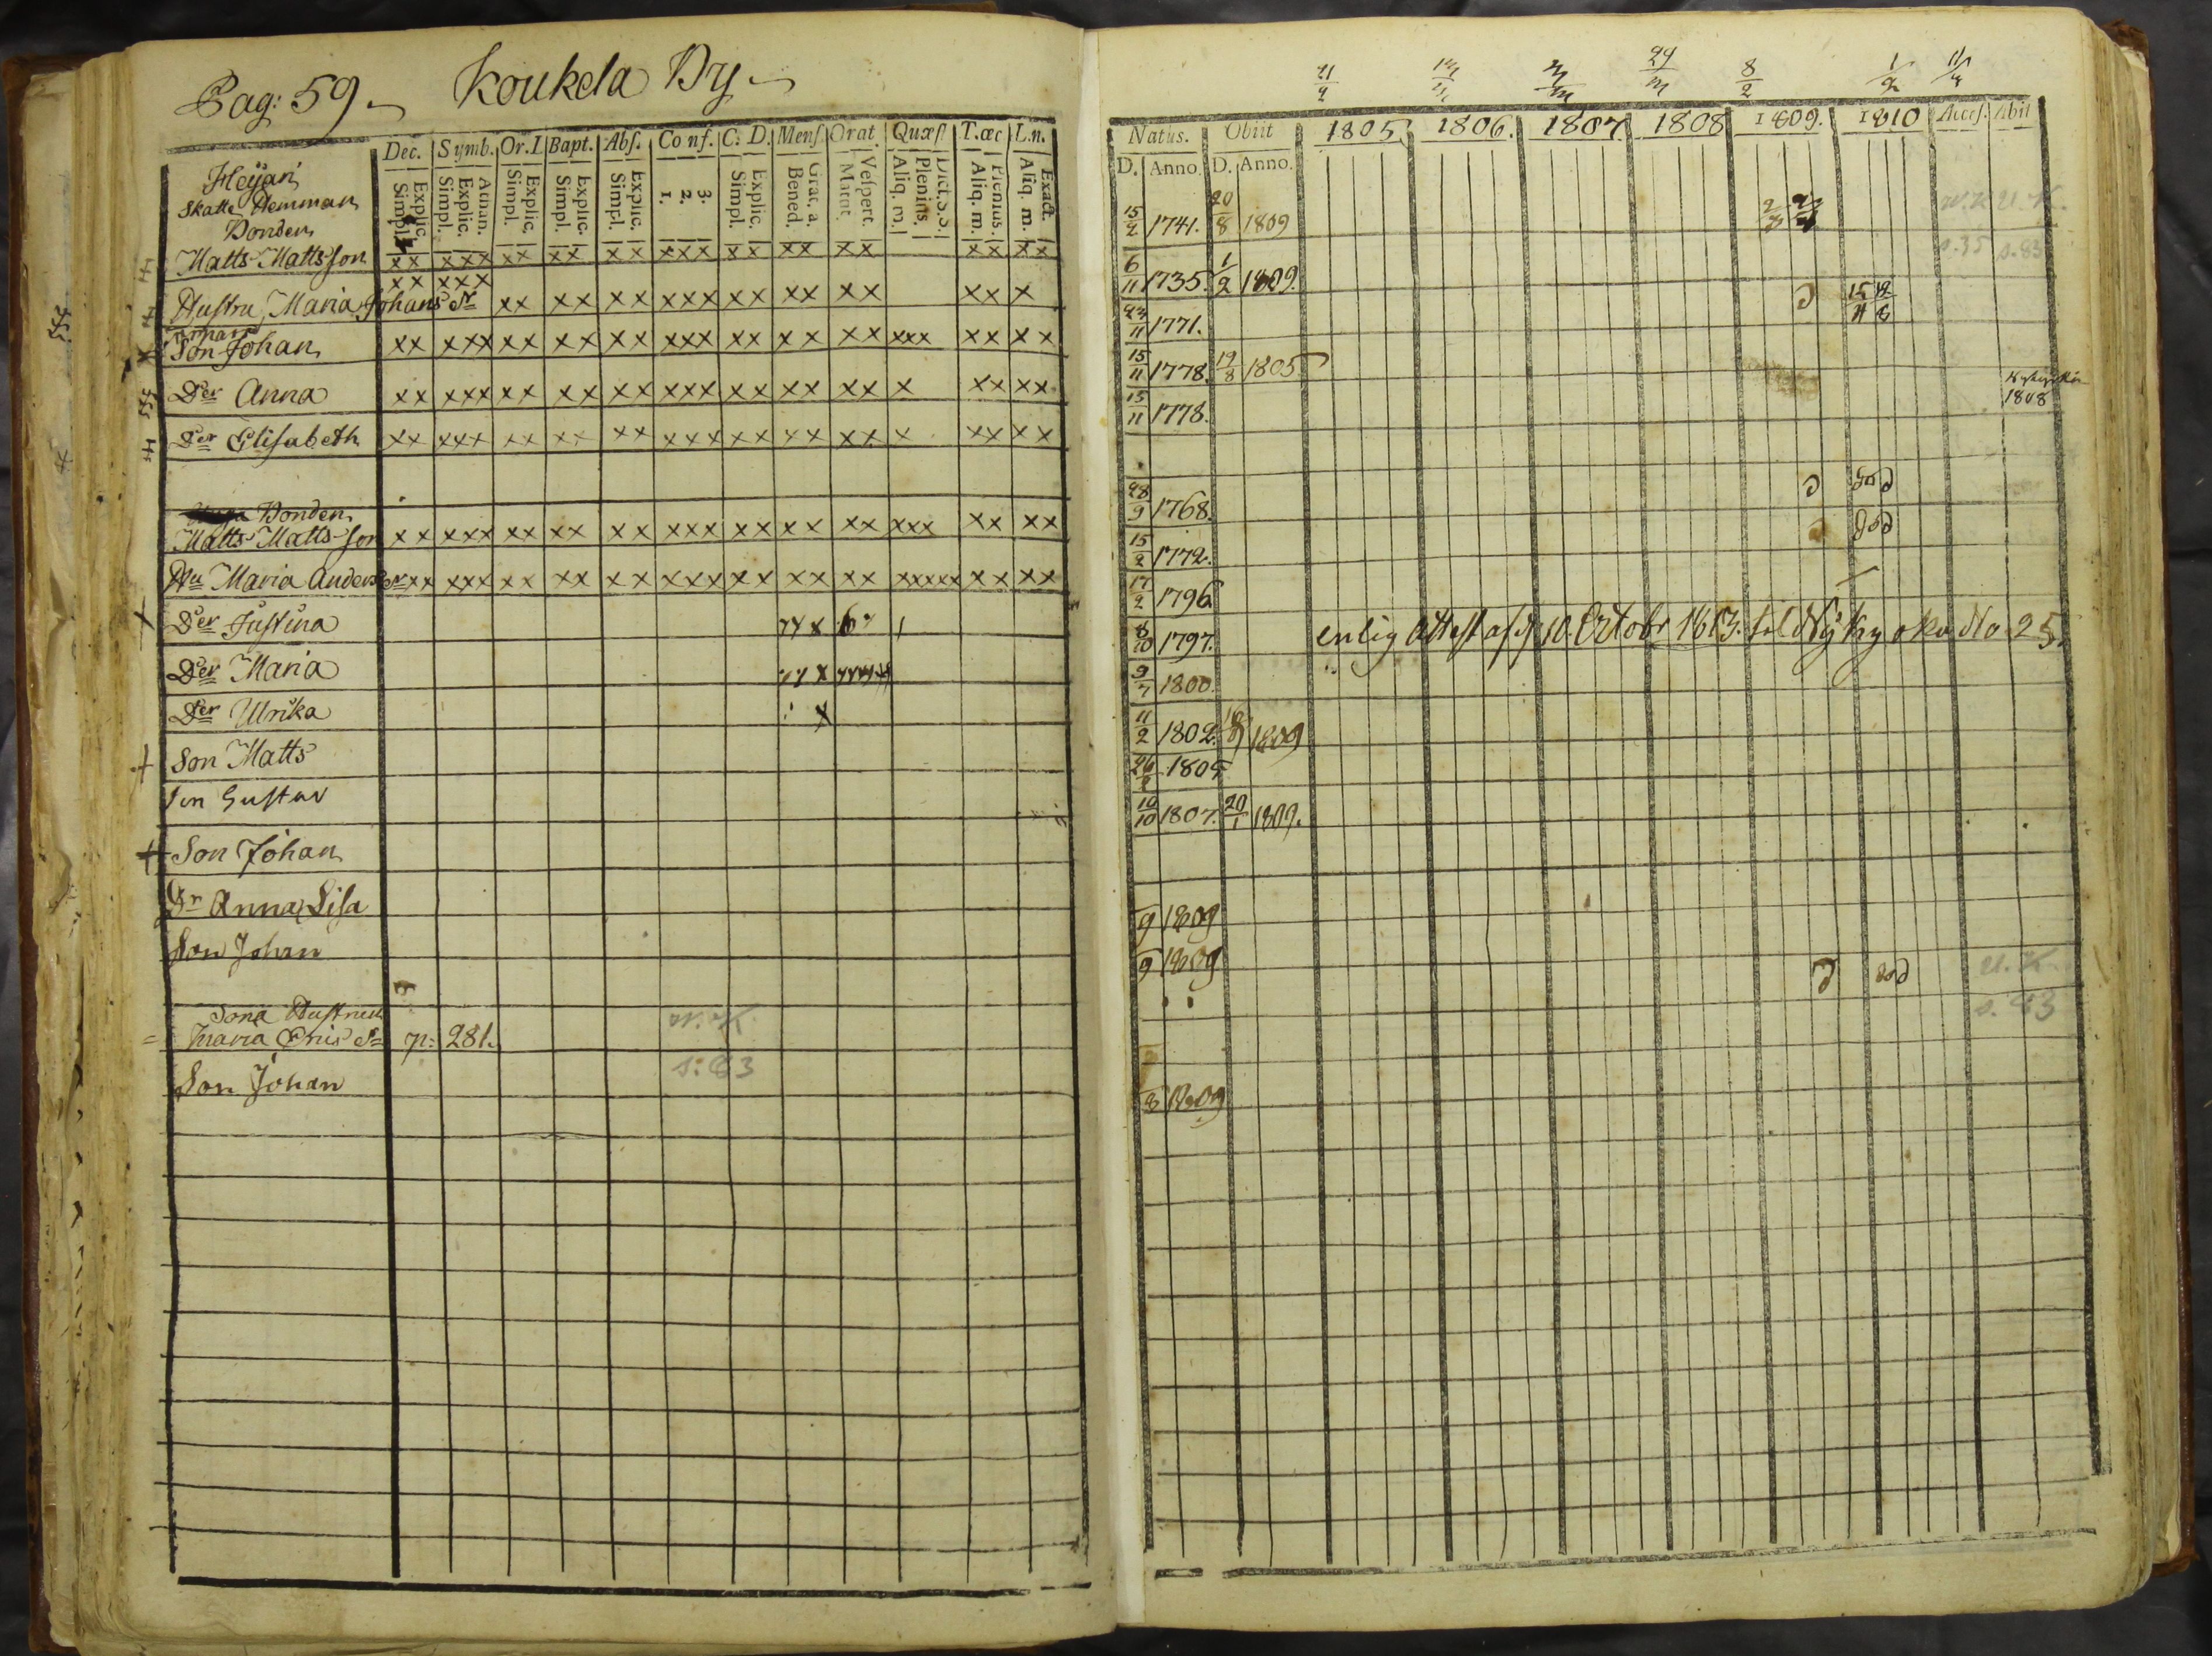 Pag: 59. Koukela By
Dec. Symb. Or. I Bapt. Abſ. Conf. C. D. Menſ. Orat. Quæſt T. œc L.n.
Explic. Simpl. Athan. Explic. Simpl. Explic. Simpl. Explic. Simpl. Explic. Simpl. 3. 2. 1. Explic. Simpl. Grat. a. Bened. Veſpert. Matut. Dict. S. S. Plenius. Aliq. m. Plenius. Aliq. m. Exact. Aliq. m.
Heÿari
Skatte Hemman
Bonden
Matts Matts son xx xxx xx xx xx xxx xx xx xx xx xx
xx xxx
Hustru Maria Johans dr xx xx xx xxx xx xx xx xx x
Son Johan xx xxx xx xx xx xxx xx xx xx xxx xx xx
Der Anna xx xxx xx xx xx xxx xx xx xx x xx xx
Der Elisabeth xx xxx xx xx xx xxx xx xx xx x xx xx
Bonden
Matts Matts son xx xxx xx xx xx xxx xx xx xx xxx xx xx
Hu Maria Anders dr xx xxx xx xx xx xxx xx xx xx xxxxx xx xx
Der Justina
Der Maria
Der Ulrika
Son Matts
Son Gustav
Son Johan
Dr Anna Lisa
Son Johan
Sona Hustrun
Maria Eriks dr p: 281.
s: 83
Son Johan
21/2 24/m 8/2 1/2 11/4
Natus. Obiit 1805 1806. 1807 1808 1809. 1810 Acceſ. Abiit
D. Anno. D. Anno.
15/2 1741. 20/8 1809
s. 35 s. 83
6/11 1735. 1/2 1809.
23/11 1771.
15/11 1778. 19/8 1805
15/11 1778. 1808
28/9 1768.
15/2 1772.
17/2 1796
8/10 1797. enlig Attest af d 10 Octobr 1813. til Ny No 25.
9/7 1800.
11/2 1802. 1809
1805
10/10 1807. 20/1 1809.
9 1809
9 1809
U. K.
s. 83
8 1809